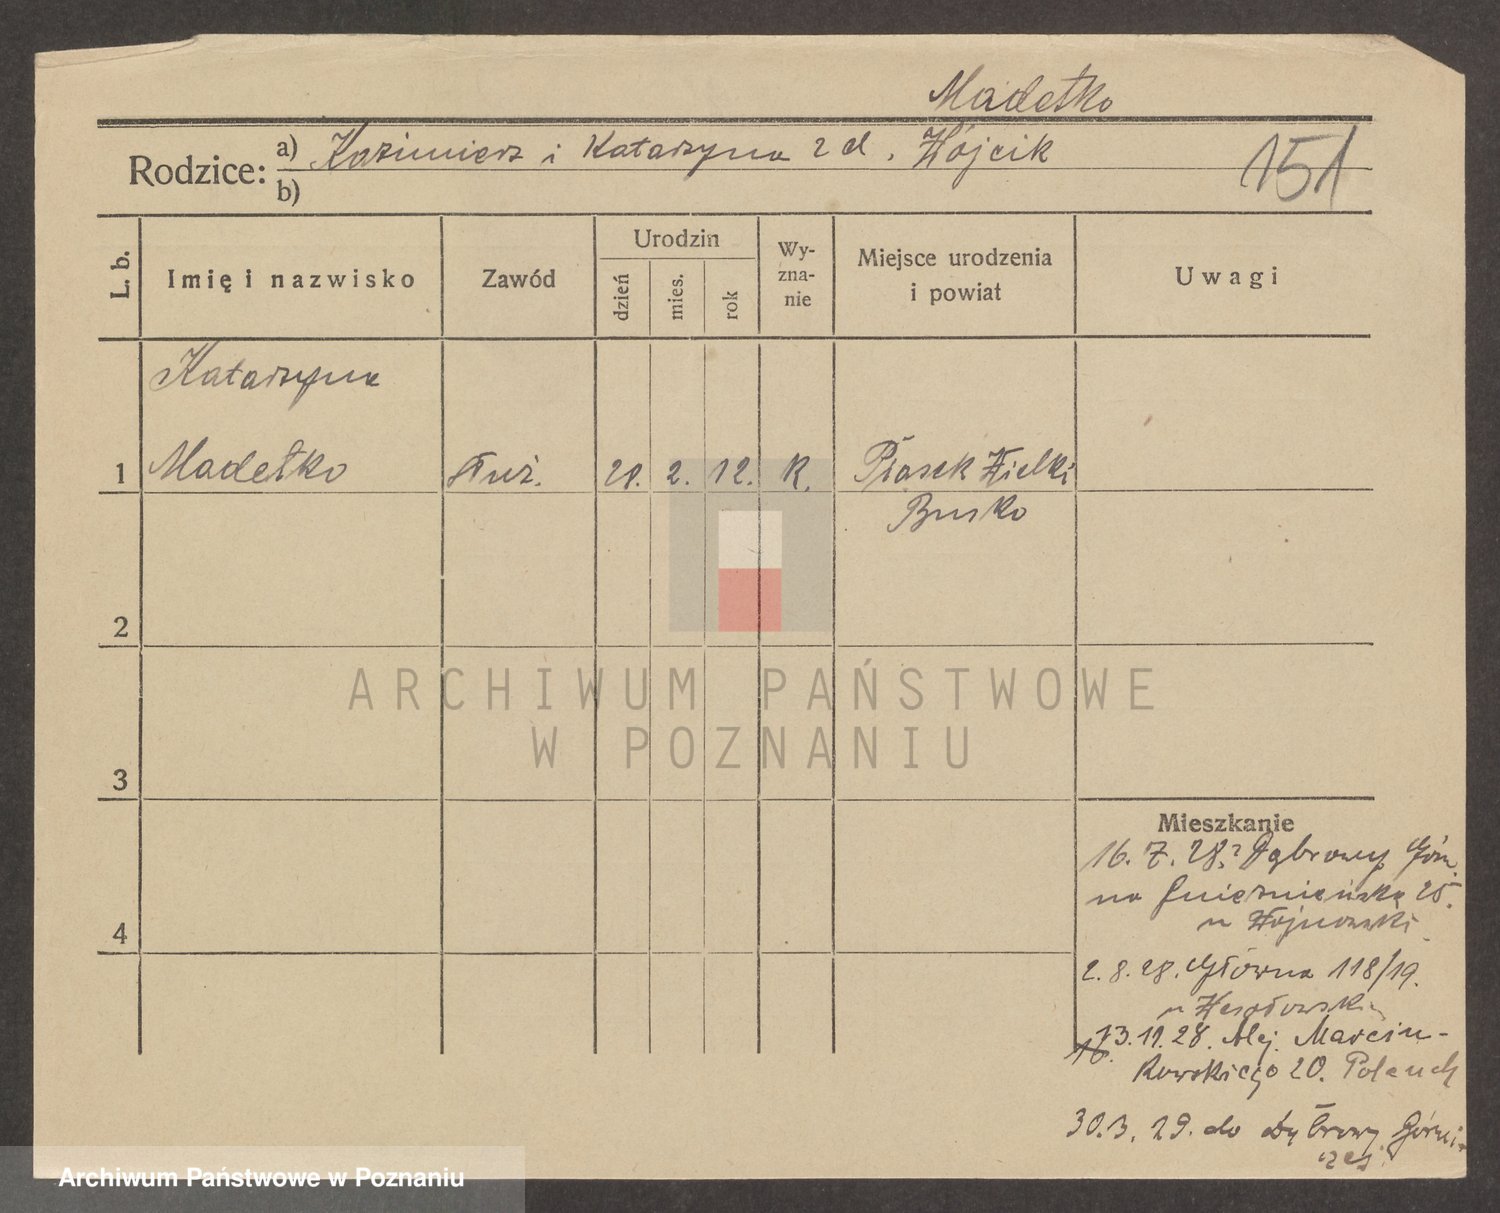 Madetko
Rodzice: a) Kazimierz i Katarzyna z d. Wójcik
b)
151
L. b.
Imię i nazwisko
Zawód
Urodzin
dzień
mies.
rok
Wy-
zna-
nie
Miejsce urodzenia
i powiat
Uwagi
Katarzyna
1 Madetko służ. 28. 2. 12. R. Piasek Wielki
Busko
2
3
4
ARCHIWUM PAŃSTWOWE
W POZNANIU
Mieszkanie
16. 7. 28. z Dąbrowy Górn.
na Gnieźnieńską 25.
u Wojnowski
2. 8. 28. Główna 118/19.
u Wesołowski
13. 11. 28. Alej. Marcin-
kowskiego 20. Polauch
30. 3. 29. do Dąbrowy Górni-
czej.
Archiwum Państwowe w Poznaniu